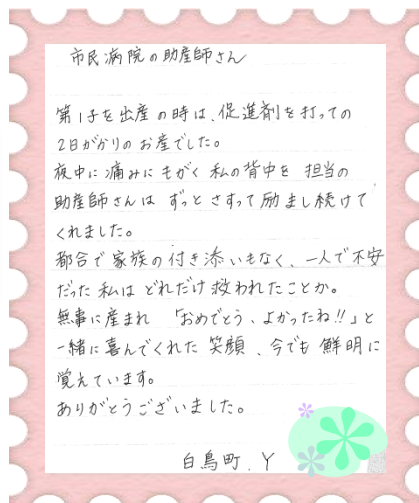 市民病院の助産師さん
第1子を出産の時は、促進剤を打っての
2日がかりのお産でした。
夜中に痛みにもがく私の背中を担当の
助産師さんはずっとさすって励まし続けて
くれました。
都合で家族の付き添いもなく、一人で不安
だった私はどれだけ救われたことか。
無事に産まれ「おめでとう、よかったね!!」と
一緒に喜んでくれた笑顔、今でも鮮明に
覚えています。
ありがとうございました。
白鳥町、Y